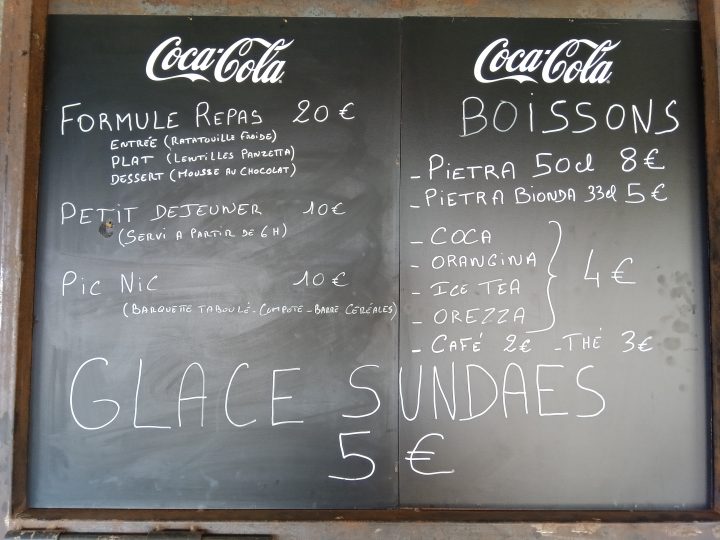 Coca-Cola
FORMULE REPAS 20 €
ENTRÉE (RATATOUILLE FROIDE)
PLAT (LENTILLES PANZETTA)
DESSERT (MOUSSE AU CHOCOLAT)
PETIT DEJEUNER 10 €
(SERVI A PARTIR DE 6 H)
PIC NIC 10 €
(BARQUETTE TABOULÉ - COMPOTE - BARRE CÉRÉALES)
Coca-Cola
BOISSONS
- PIETRA 50cl 8 €
- PIETRA BIONDA 33cl 5 €
- COCA
- ORANGINA
- ICE TEA
- OREZZA
4 €
- CAFÉ 2€ - THÉ 3€
GLACE SUNDAES
5 €